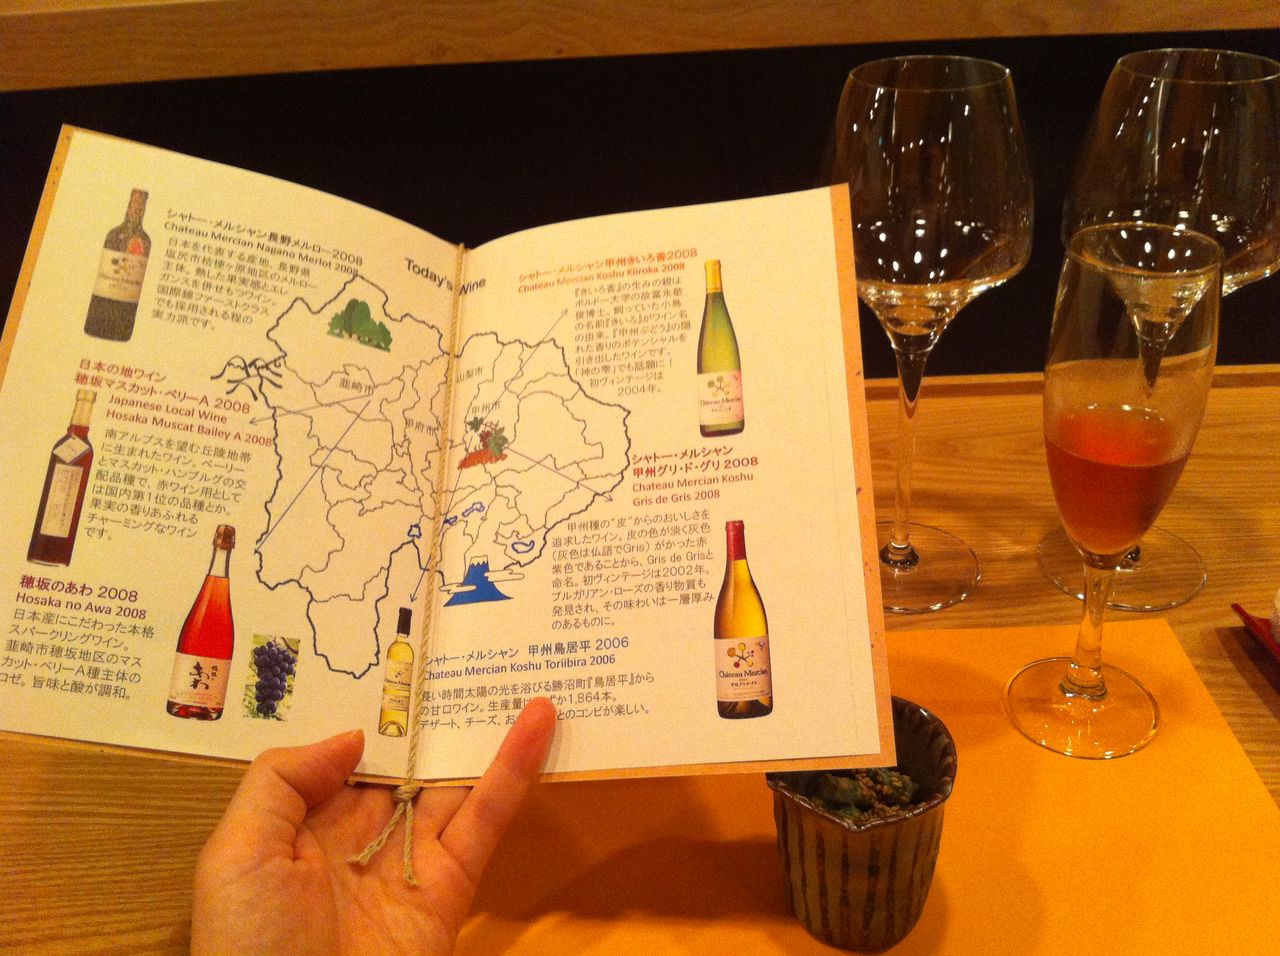 Today's Wine
シャトー・メルシャン長野メルロー2008
Chateau Mercian Nagano Merlot 2008
日本を代表する産地、長野県
塩尻市桔梗ヶ原地区のメルロー
主体。熟した果実感とエレ
ガンスを併せもつワイン。
国際線ファーストクラス
でも採用される程の
実力派です。
日本の地ワイン
穂坂マスカット・ベリーA 2008
Japanese Local Wine
Hosaka Muscat Bailey A 2008
南アルプスを望む丘陵地帯
に生まれたワイン。ベーリー
とマスカット・ハンブルグの交
配品種で、赤ワイン用として
は国内第1位の品種とか。
果実の香りあふれる
チャーミングなワイン
です。
穂坂のあわ 2008
Hosaka no Awa 2008
日本産にこだわった本格
スパークリングワイン。
韮崎市穂坂地区のマス
カット・ベリーA種主体の
ロゼ。旨味と酸が調和。
あわ
韮崎市
甲府市
山梨市
甲州市
シャトー・メルシャン甲州きいろ香2008
Chateau Mercian Koshu Kiiroka 2008
『きいろ香』の生みの親は
ボルドー大学の故富永敬
俊博士。飼っていた小鳥
の名前『きいろ』がワイン名
の由来。『甲州ぶどう』の隠
れた香りのポテンシャルを
引き出したワインです。
「神の雫」でも話題に！
初ヴィンテージは
2004年。
Château Mercian
シャトー・メルシャン
甲州グリ・ド・グリ 2008
Chateau Mercian Koshu
Gris de Gris 2008
甲州種の"皮"からのおいしさを
追求したワイン。皮の色が淡く灰色
（灰色は仏語でGris）がかった赤
紫色であることから、Gris de Grisと
命名。初ヴィンテージは2002年。
ブルガリアン・ローズの香り物質も
発見され、その味わいは一層厚み
のあるものに。
Château Mercian
シャトー・メルシャン 甲州鳥居平 2006
Chateau Mercian Koshu Toriibira 2006
長い時間太陽の光を浴びる勝沼町『鳥居平』から
の甘口ワイン。生産量は ずか1,864本。
デザート、チーズ、お とのコンビが楽しい。